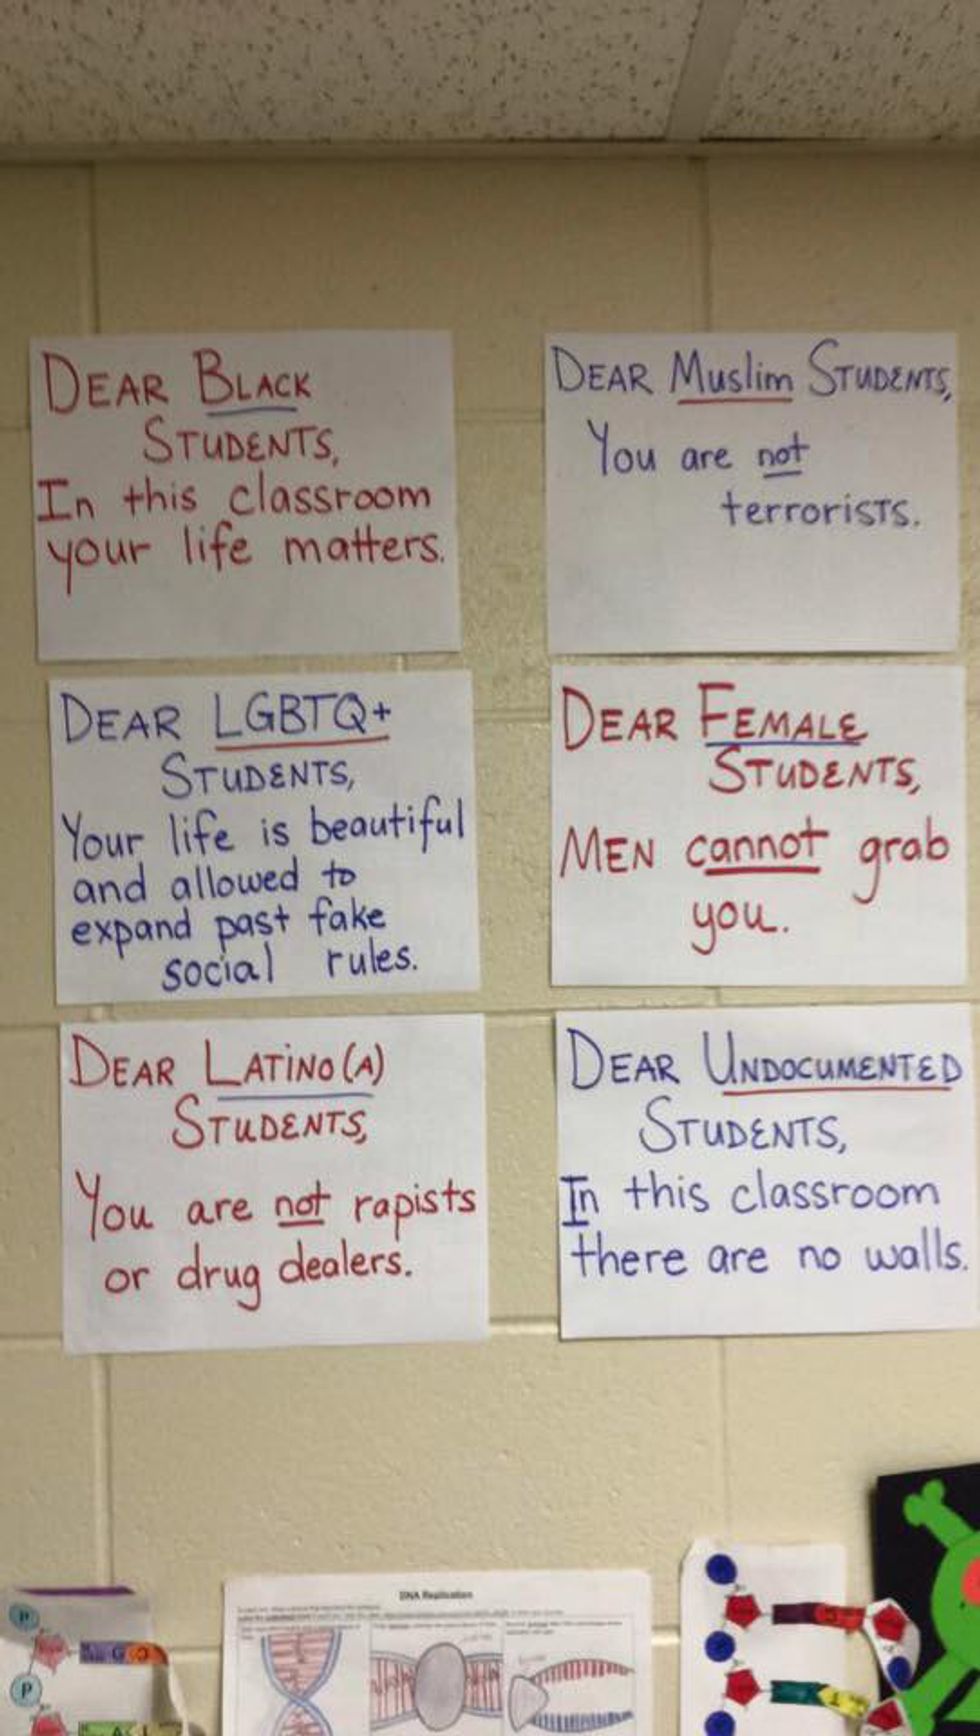 DEAR BLACK
STUDENTS,
In this classroom
your life matters.
DEAR Muslim STUDENTS,
You are not
terrorists.
DEAR LGBTQ+
STUDENTS,
Your life is beautiful
and allowed to
expand past fake
social rules.
DEAR FEMALE
STUDENTS,
MEN cannot grab
you.
DEAR LATINO(A)
STUDENTS,
You are not rapists
or drug dealers.
DEAR UNDOCUMENTED
STUDENTS,
In this classroom
there are no walls.
DNA Replication
P
P